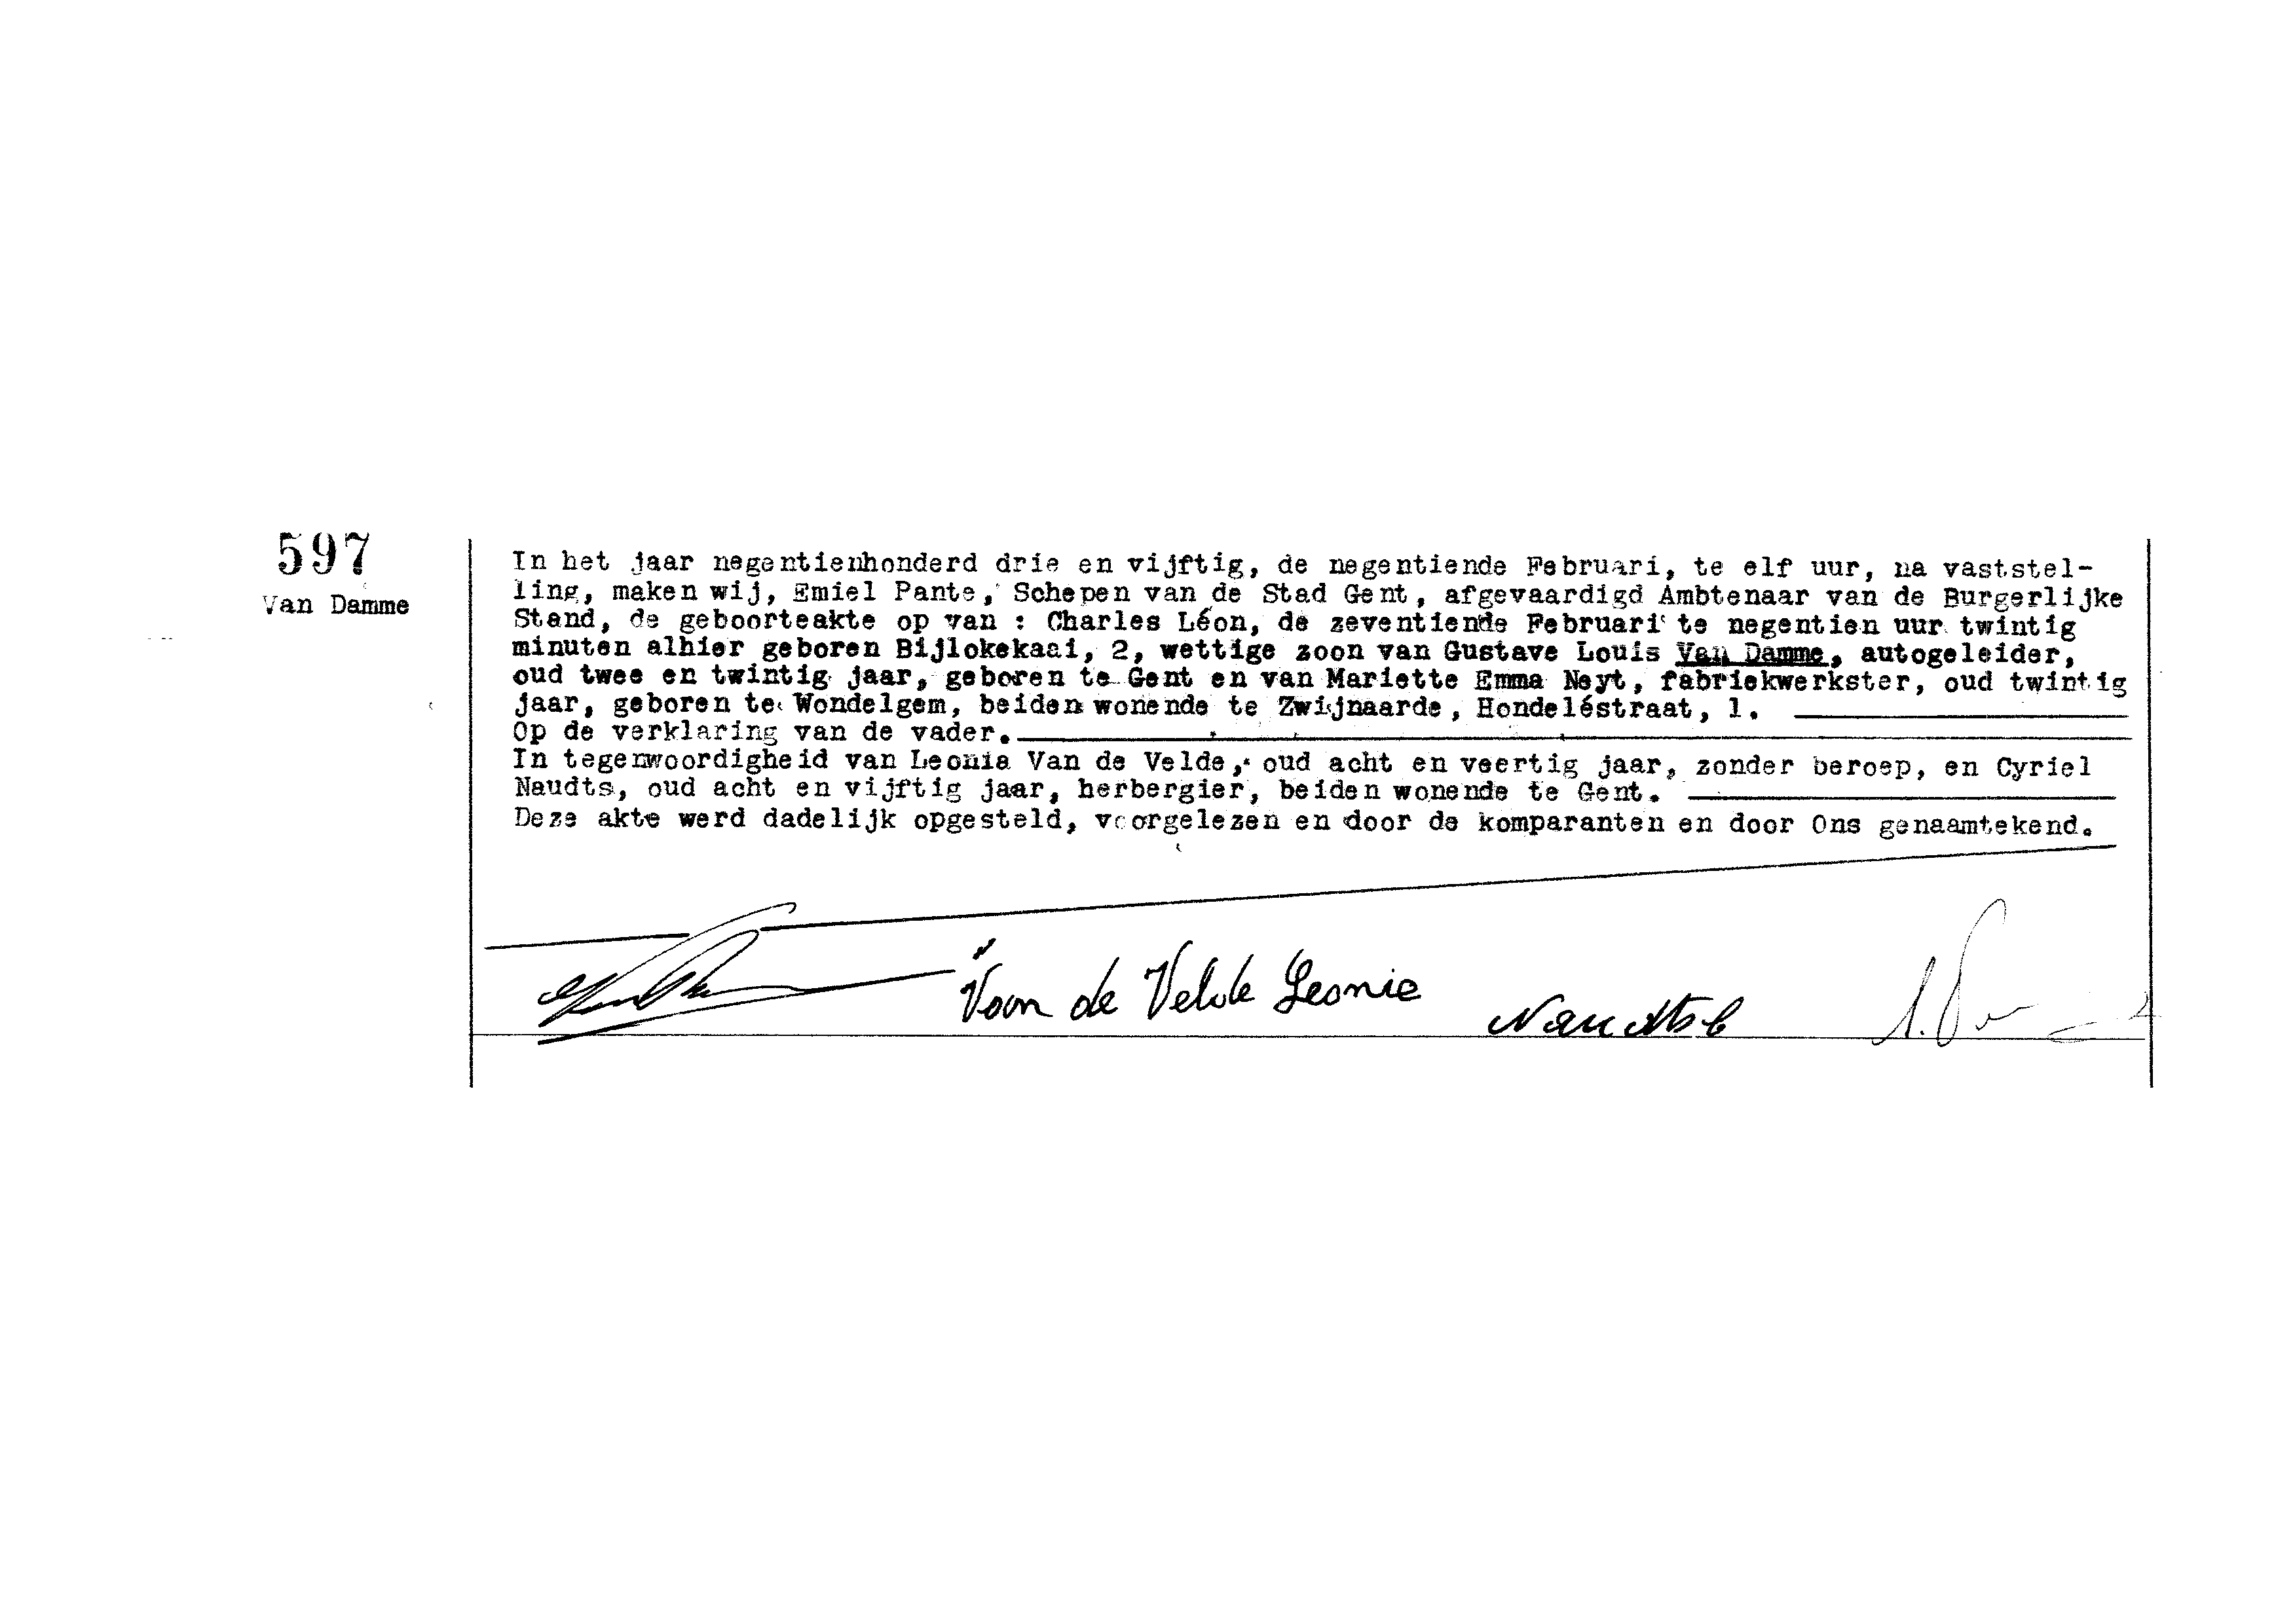 597
Van Damme
In het jaar negentienhonderd drie en vijftig, de negentiende Februari, te elf uur, na vaststel-
ling, maken wij, Emiel Pante, Schepen van de Stad Gent, afgevaardigd Ambtenaar van de Burgerlijke
Stand, de geboorteakte op van : Charles Léon, de zeventiende Februari te negentien uur twintig
minuten alhier geboren Bijlokekaai, 2, wettige zoon van Gustave Louis Van Damme, autogeleider,
oud twee en twintig jaar, geboren te Gent en van Mariette Emma Neyt, fabriekwerkster, oud twintig
jaar, geboren te Wondelgem, beiden wonende te Zwijnaarde, Hondeléstraat, 1.
Op de verklaring van de vader.
In tegenwoordigheid van Leonia Van de Velde, oud acht en veertig jaar, zonder beroep, en Cyriel
Naudts, oud acht en vijftig jaar, herbergier, beiden wonende te Gent.
Deze akte werd dadelijk opgesteld, voorgelezen en door de komparanten en door Ons genaamtekend.
Van de Velde Leonie
Naudts